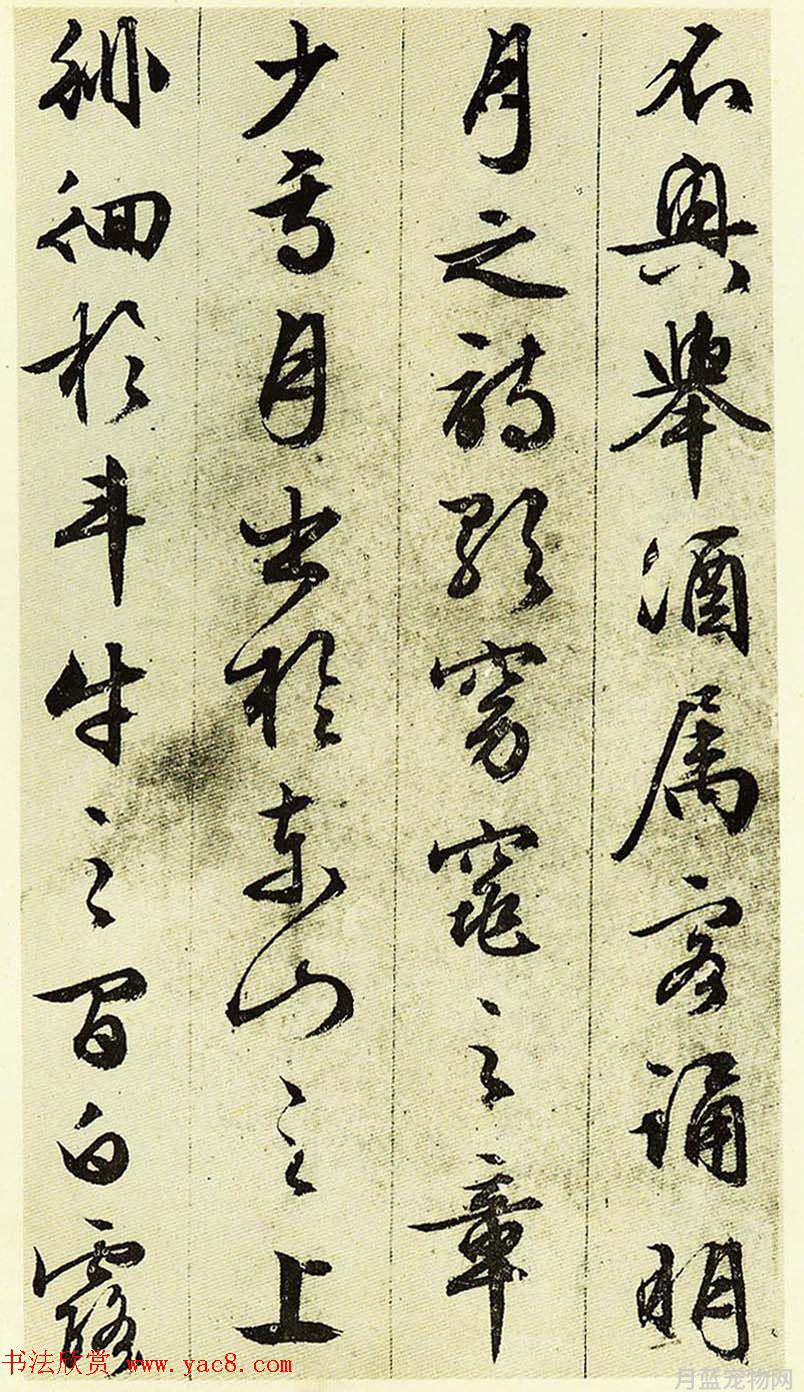 不興舉酒属客誦明
月之詩歌窈窕之章
少焉月出於東山之上
徘徊於斗牛之間白露
书法欣赏 www.yac8.com
月蓝宠物网